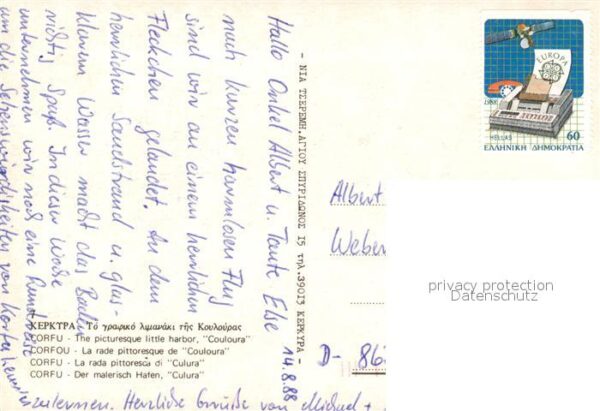 14.8.88
Hallo Onkel Albert u. Tante Else
nach kurzen harmlosen Flug
sind wir an einem herrlichen
Fleckchen gelandet. An dem
herrlichen Sandstrand u. glas-
klarem Wasser macht das Baden
richtig Spaß. In dieser Woche
unternehmen wir noch eine Rundreise
um die Sehenswürdigkeiten von Korfu kennen
zulernen. Herzliche Grüße von Michael +
- ΝΙΑ ΤΣΕΡΕΜΗ, ΑΓΙΟΥ ΣΠΥΡΙΔΩΝΟΣ 15 τηλ. 39013 ΚΕΡΚΥΡΑ -
ΚΕΡΚΥΡΑ - Τό γραφικό λιμανάκι τῆς Κουλούρας
CORFU - The picturesque little harbor, "Couloura"
CORFOU - La rade pittoresque de "Couloura"
CORFU - La rada pittoresca di "Culura"
CORFU - Der malerisch Hafen, "Culura"
EUROPA
1988
HELLAS
60
ΕΛΛΗΝΙΚΗ ΔΗΜΟΚΡΑΤΙΑ
Albert
Weber
D- 862
privacy protection
Datenschutz